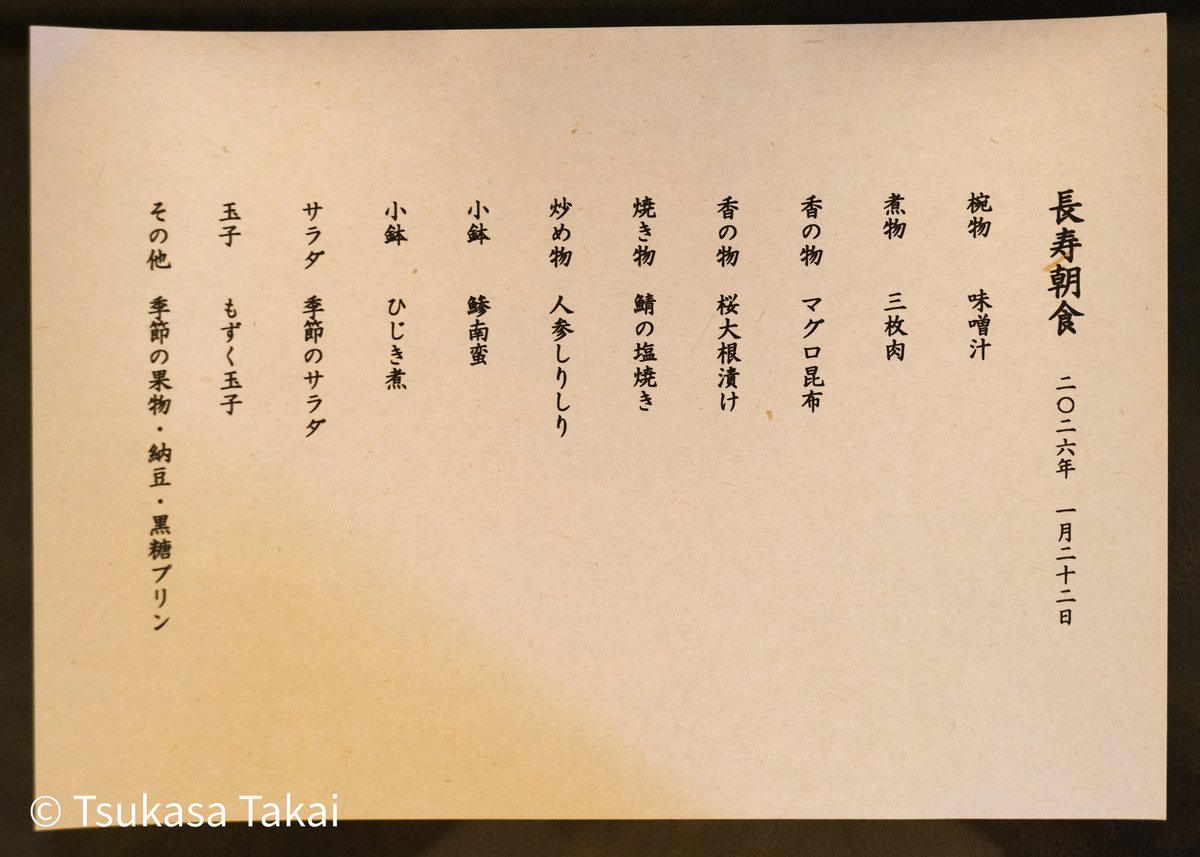 長寿朝食 二〇二六年 一月二十二日
椀物 味噌汁
煮物 三枚肉
香の物 マグロ昆布
香の物 桜大根漬け
焼き物 鯖の塩焼き
炒め物 人参しりしり
小鉢 鯵南蛮
小鉢 ひじき煮
サラダ 季節のサラダ
玉子 もずく玉子
その他 季節の果物・納豆・黒糖プリン
© Tsukasa Takai